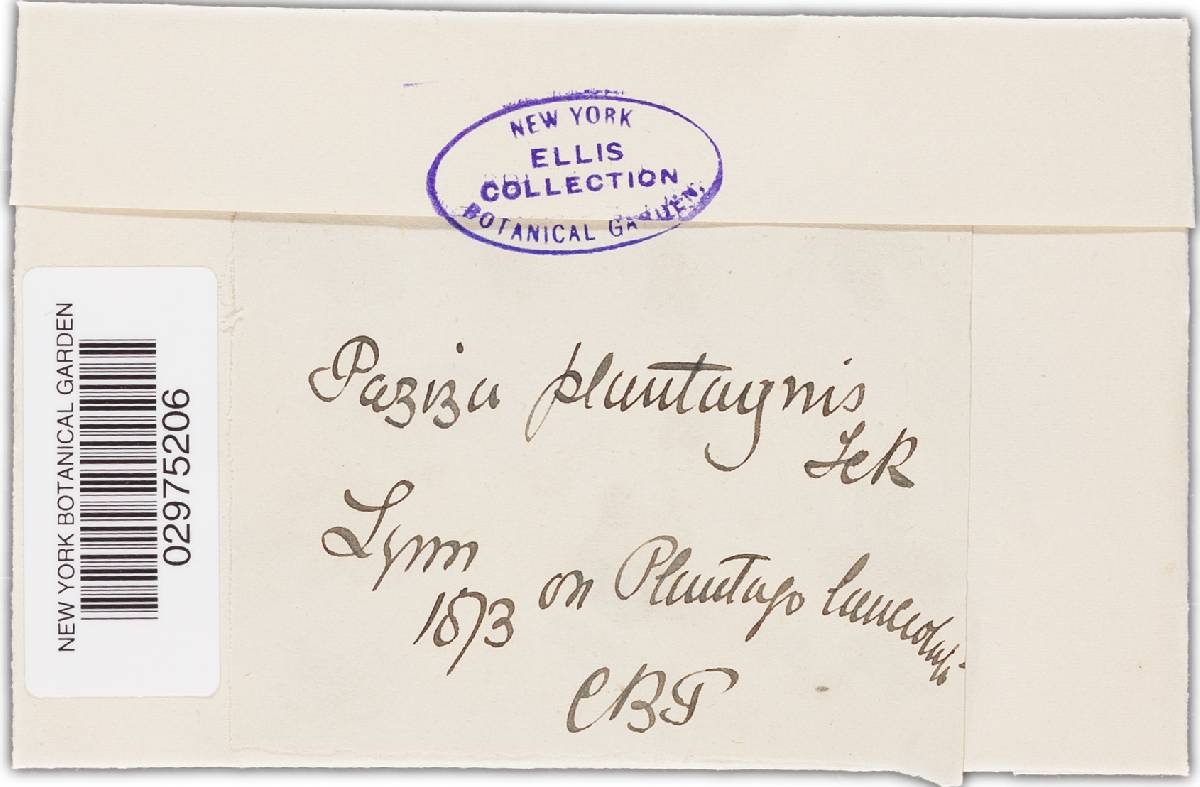 NEW YORK
ELLIS
COLLECTION
BOTANICAL GARDEN.
NEW YORK BOTANICAL GARDEN
02975206
Peziza plantaginis
Lynn
1873 on Plantago lanceolata
CBP